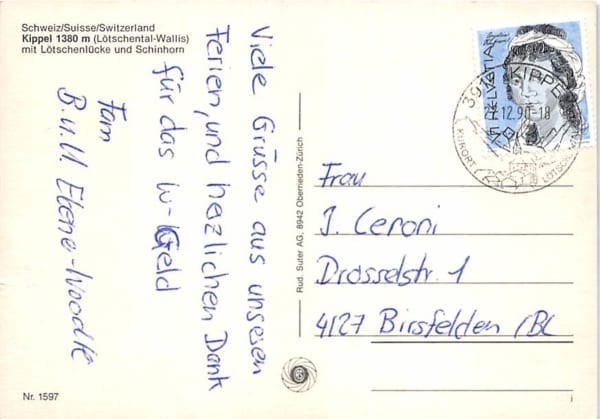 Schweiz/Suisse/Switzerland
Kippel 1380 m (Lötschental-Wallis)
mit Lötschenlücke und Schinhorn
Viele Grüsse aus unseren
Ferien, und herzlichen Dank
für das W-Geld
Fam
B. u. U.
Rud. Suter AG, 8942 Oberrieden-Zürich
HELVETIA
KIPPEL
27.12.90-18
KURORT
Frau
J. Ceroni
Drosselstr. 1
4127 Birsfelden /BL
Nr. 1597
i